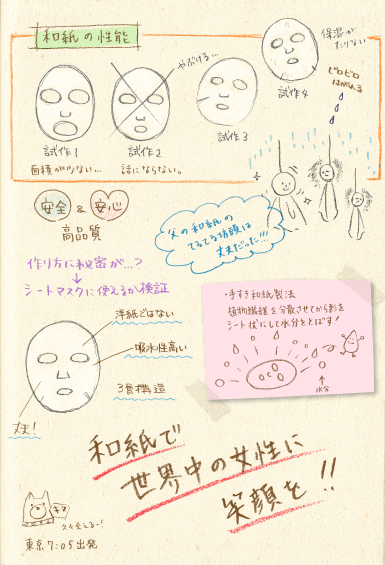 和紙の性能
試作1
面積が少ない…
試作2
話にならない。
やぶける…
試作3
試作4
保湿が
たりない
ビロビロ
はがれる
安全&安心
高品質
父の和紙の
てるてる坊頭は
丈夫だった!!!
作り方に秘密が…?
シートマスクに使えるか検証
洋紙ではない
吸水性高い
3層構造
丈夫!
・手すき和紙製法
植物繊維を分散させてから形を
シート状にして水分をとばす!
水分
和紙で
世界中の女性に
笑顔を!!
東京7:05出発